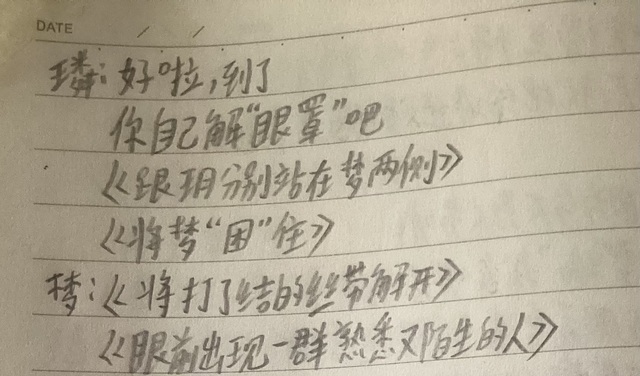 DATE / /
璘：好啦，到了
你自己解“眼罩”吧
《跟玥分别站在梦两侧》
《将梦“困”住》
梦：《将打了结的丝带解开》
《眼前出现一群熟悉又陌生的人》